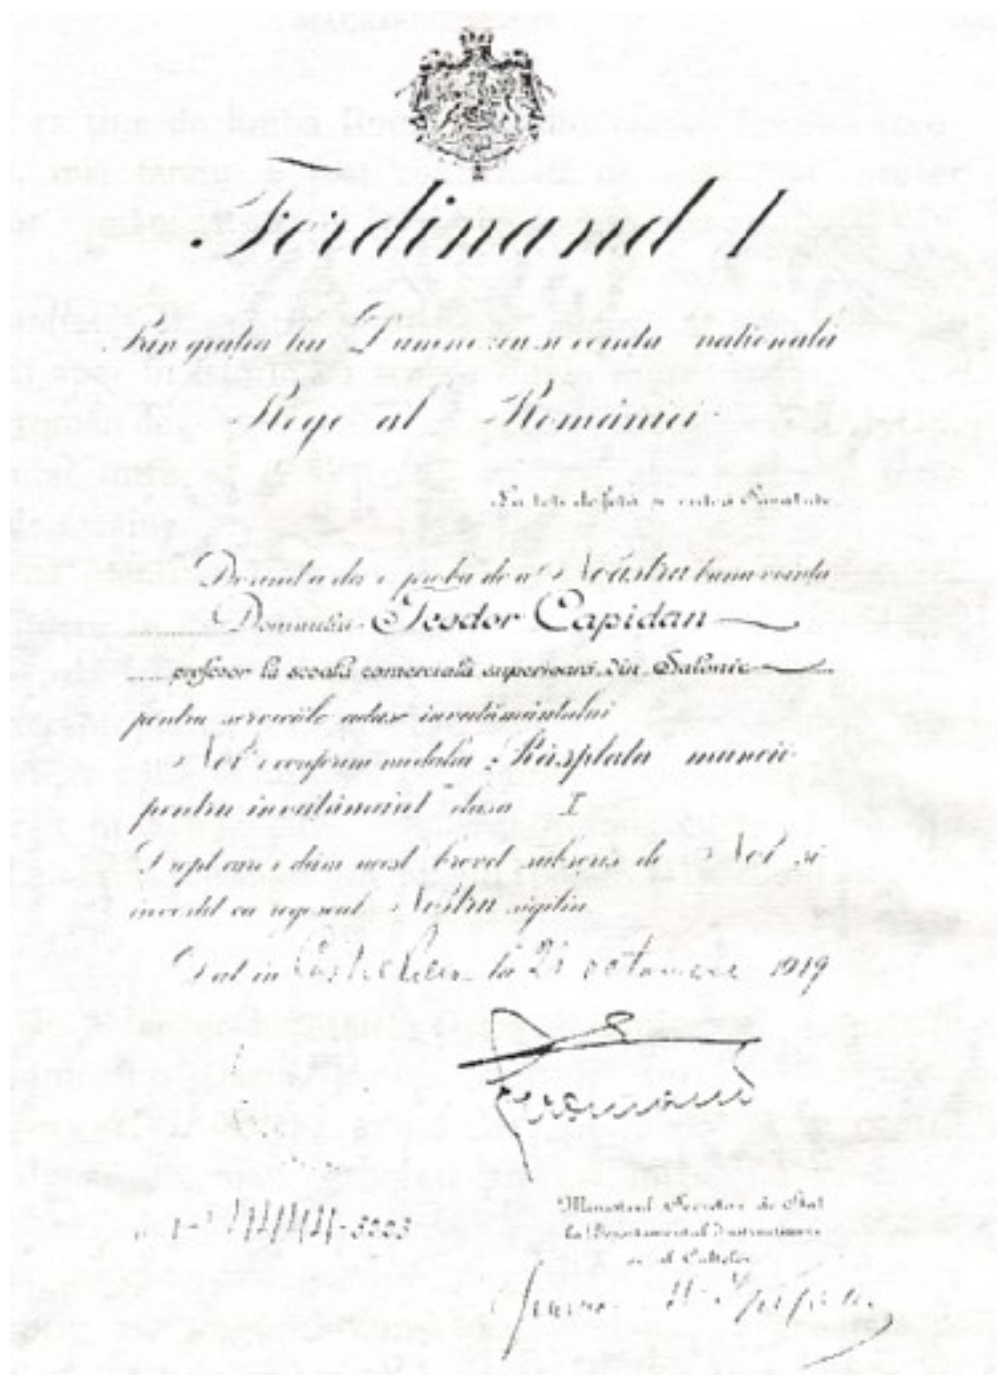 Ferdinand I
Prin gratia lui Dumnezeu si vointa nationala
Rege al României
La toti de fată si viitori Sanatate
Voind a da o proba de a Noastra buna vointa
Domnului Teodor Capidan
profesor la scoala comercială superioară din Salonic
pentru serviciile aduse invatământului
Noi i conferim medalia "Răsplata muncii
pentru invatământ" clasa I
Drept care i dăm acest brevet subscris de Noi si
investit cu regescul Nostru sigiliu
Dat in Castel Peles la 21 octomvrie 1919
Ministrul Secretar de Stat
la Departamentul Instructiunei
si al Cultelor